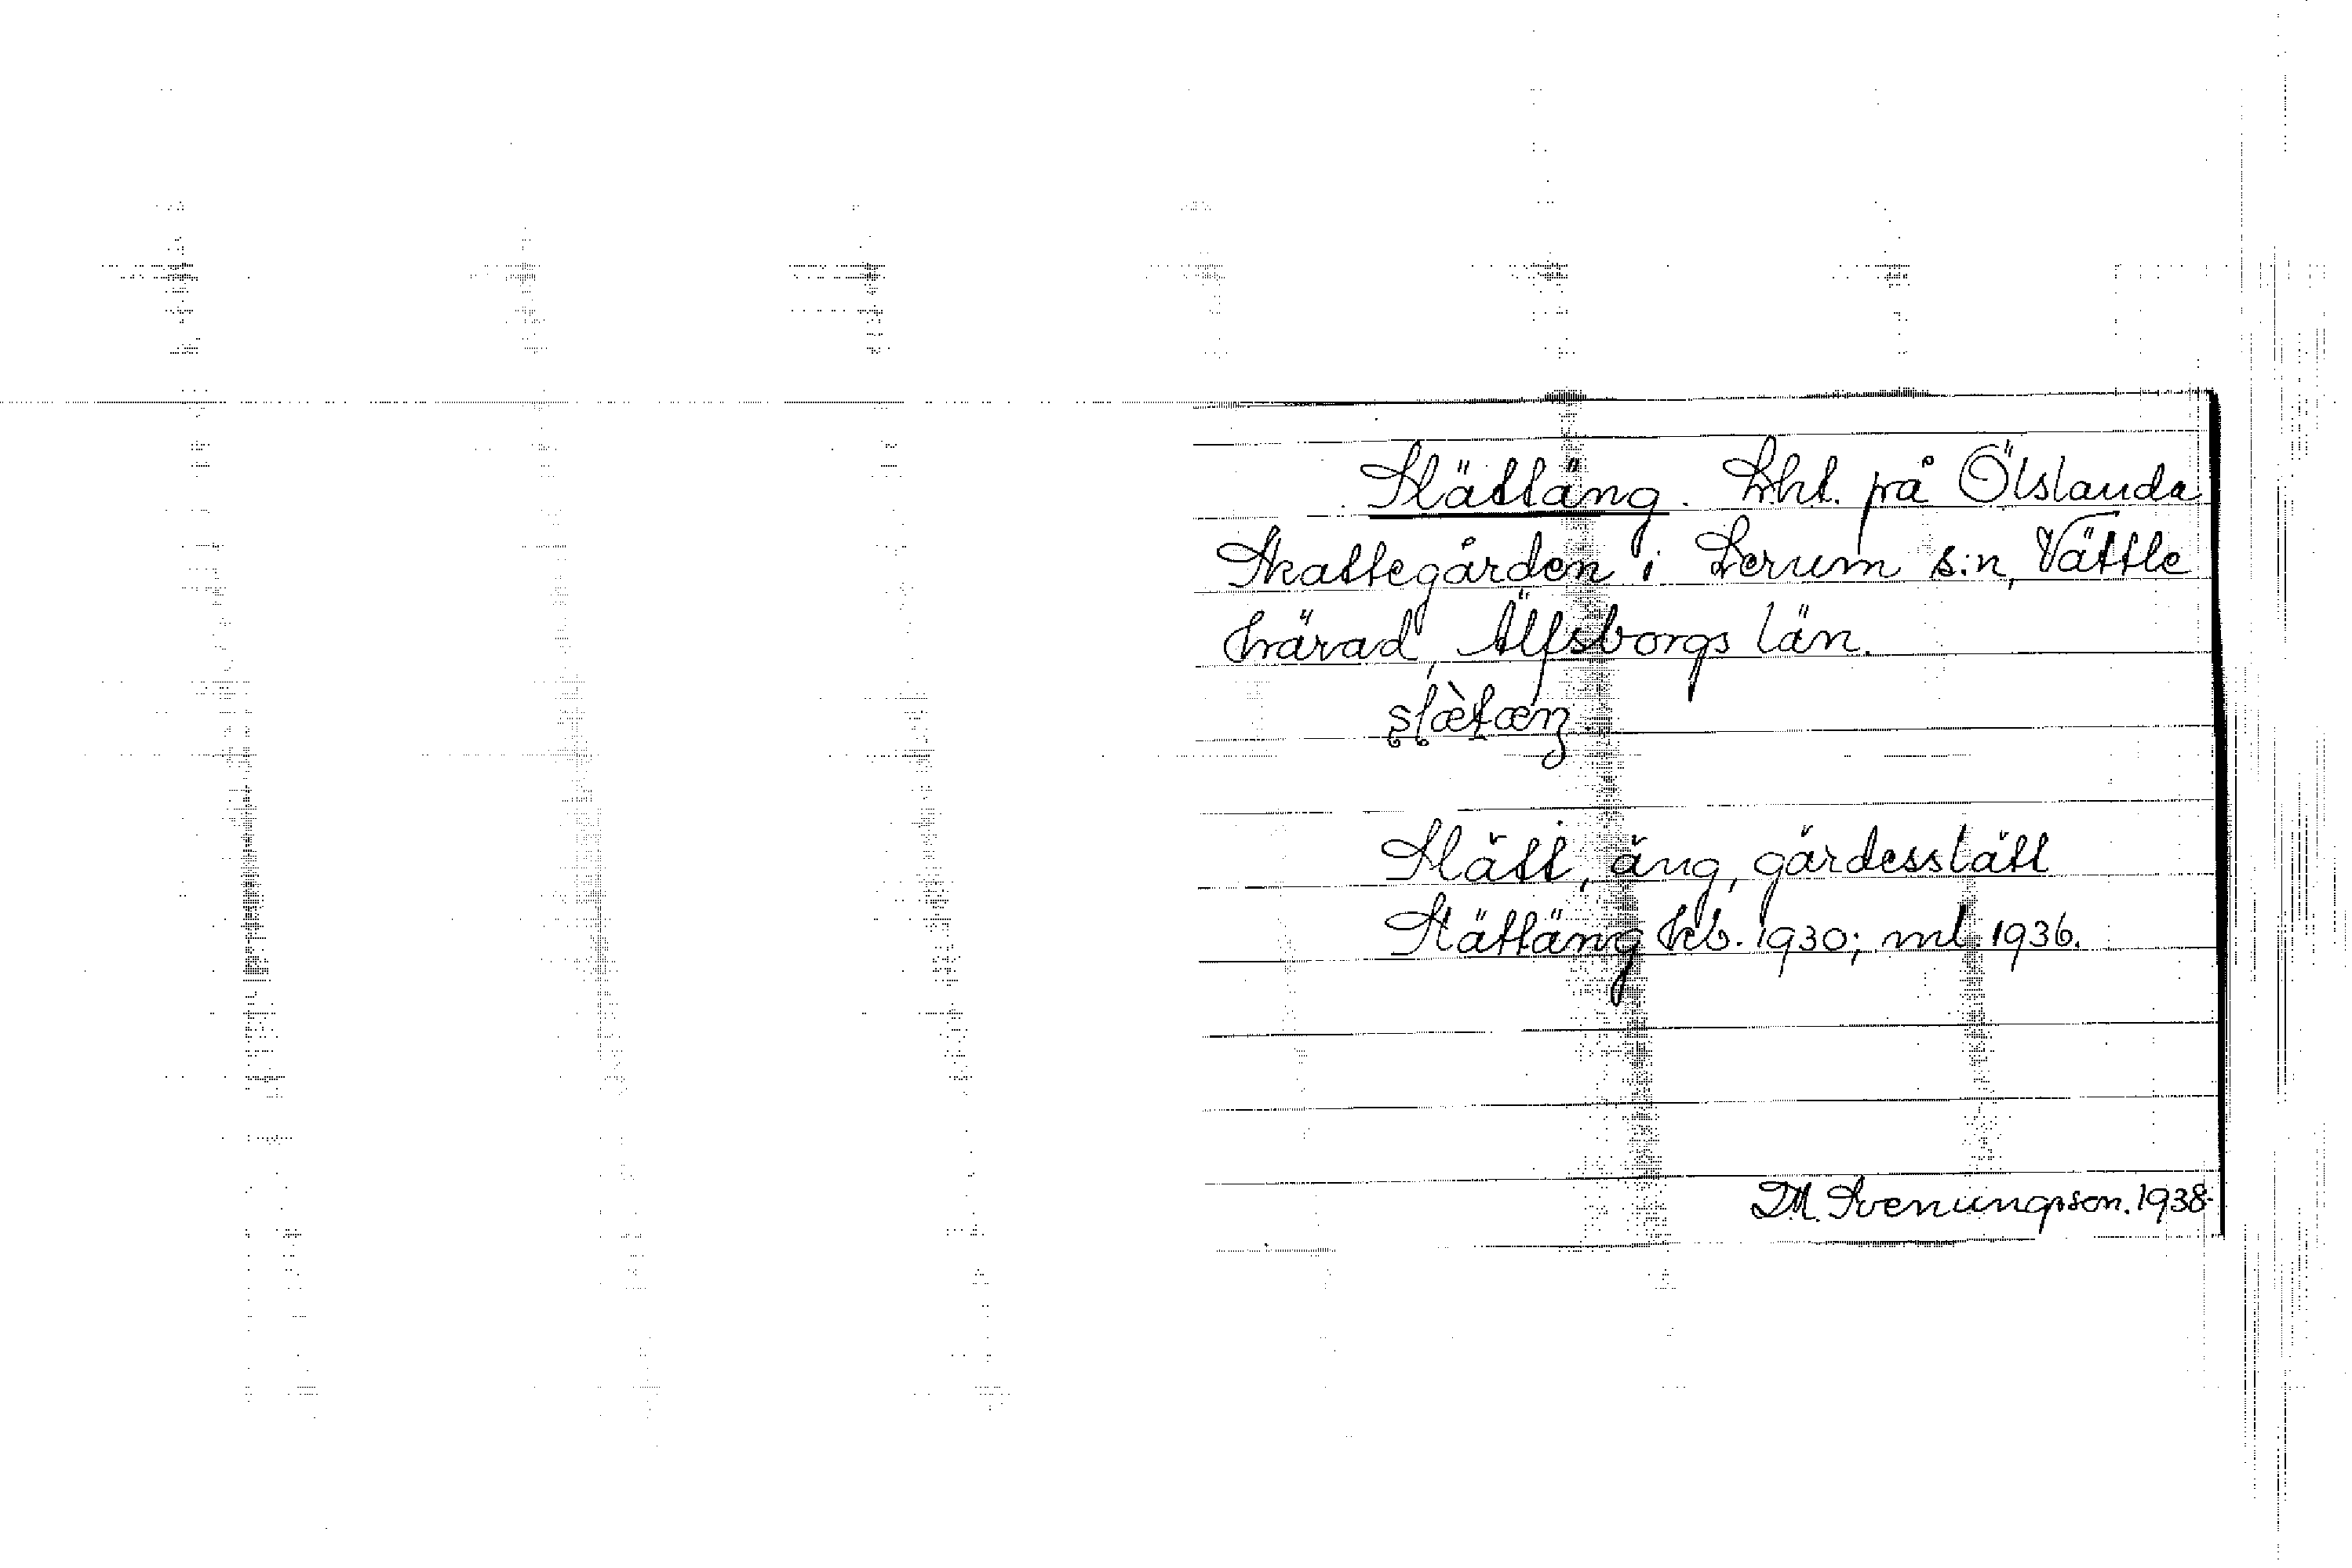 Slättäng. Lht. på Ölslanda
Skattegården i Lerum s:n, Vättle
härad, Älfsborgs län.
slæ̀tæŋ
Slätt, äng, gärdesslätt
Slättäng Frb. 1930; ml. 1936.
D.M. Svenungsson. 1938.